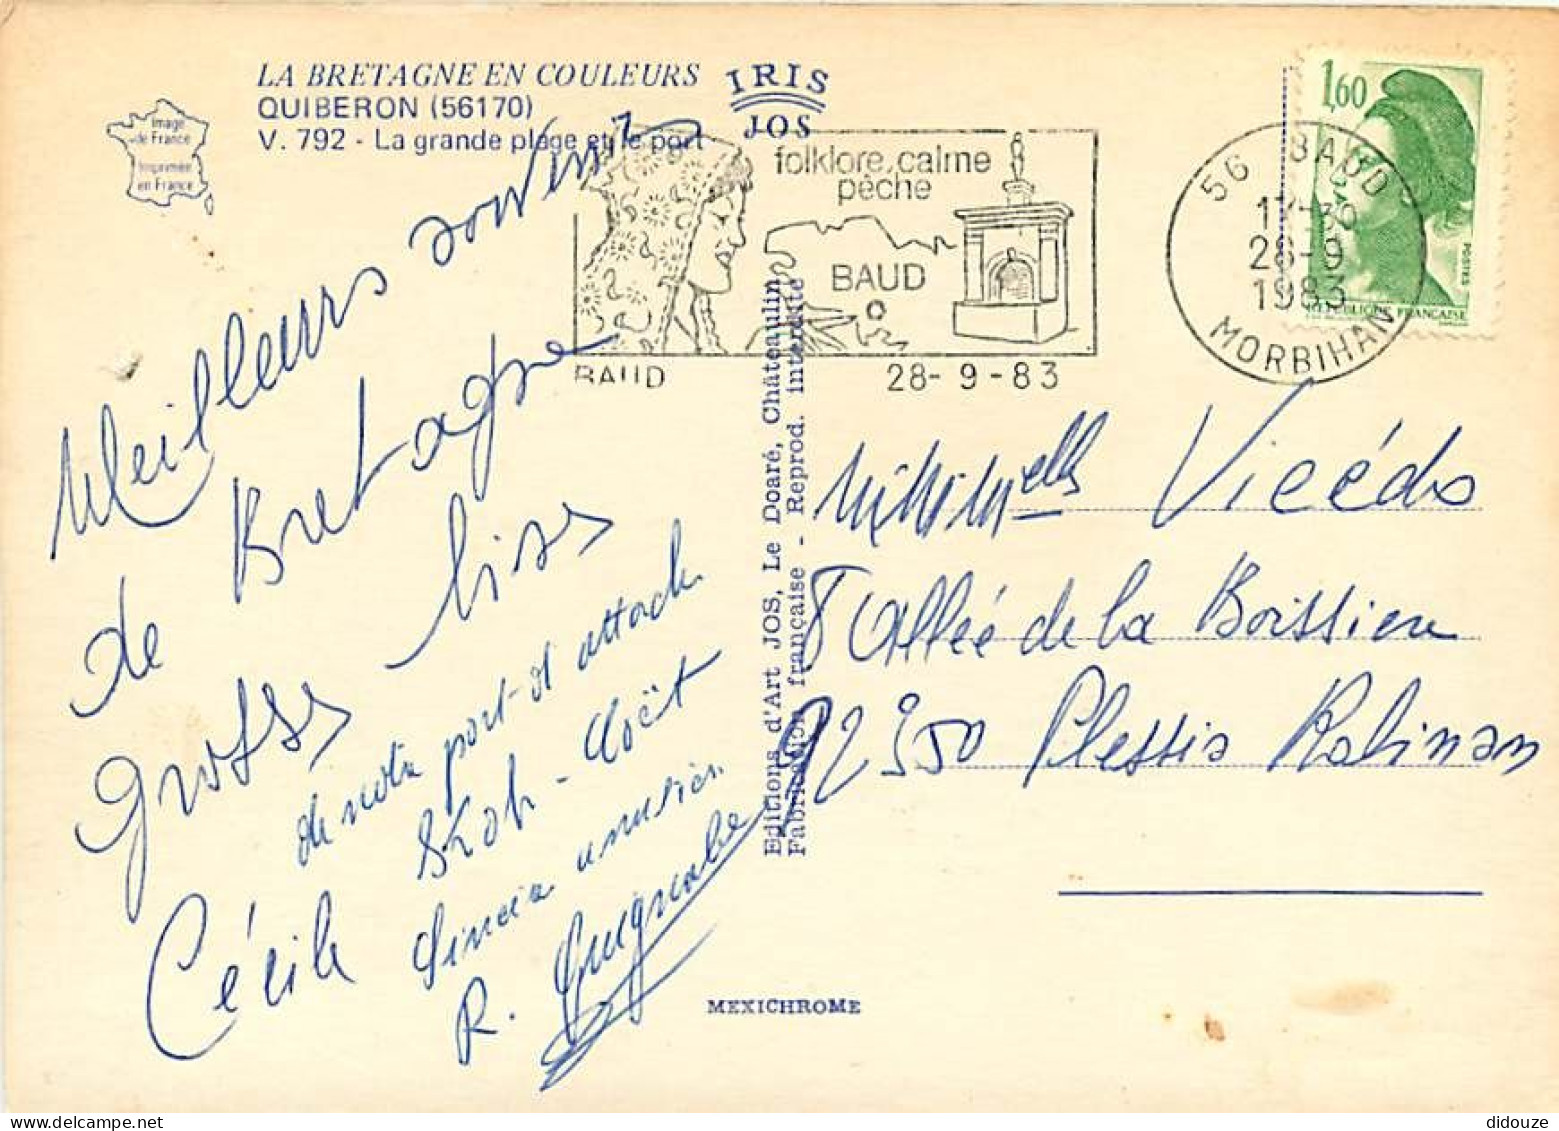 LA BRETAGNE EN COULEURS
QUIBERON (56170)
V. 792 - La grande plage et le port
Image
de France
Imprimée
en France
IRIS
JOS
folklore, calme
pêche
BAUD
BAUD
28-9-83
56 BAUD
17-30
28-9
1983
MORBIHAN
1,60
POSTES
REPUBLIQUE FRANCAISE
Meilleurs souvenirs
de Bretagne
Grosses bises
de notre port d'attach
Cécile
R.
Editions d'Art JOS, Le Doaré, Châteaulin
Fabrication française - Reprod. interdite
8 Allée de la Boissiere
92350 Plessis Robinson
MEXICHROME
didouze